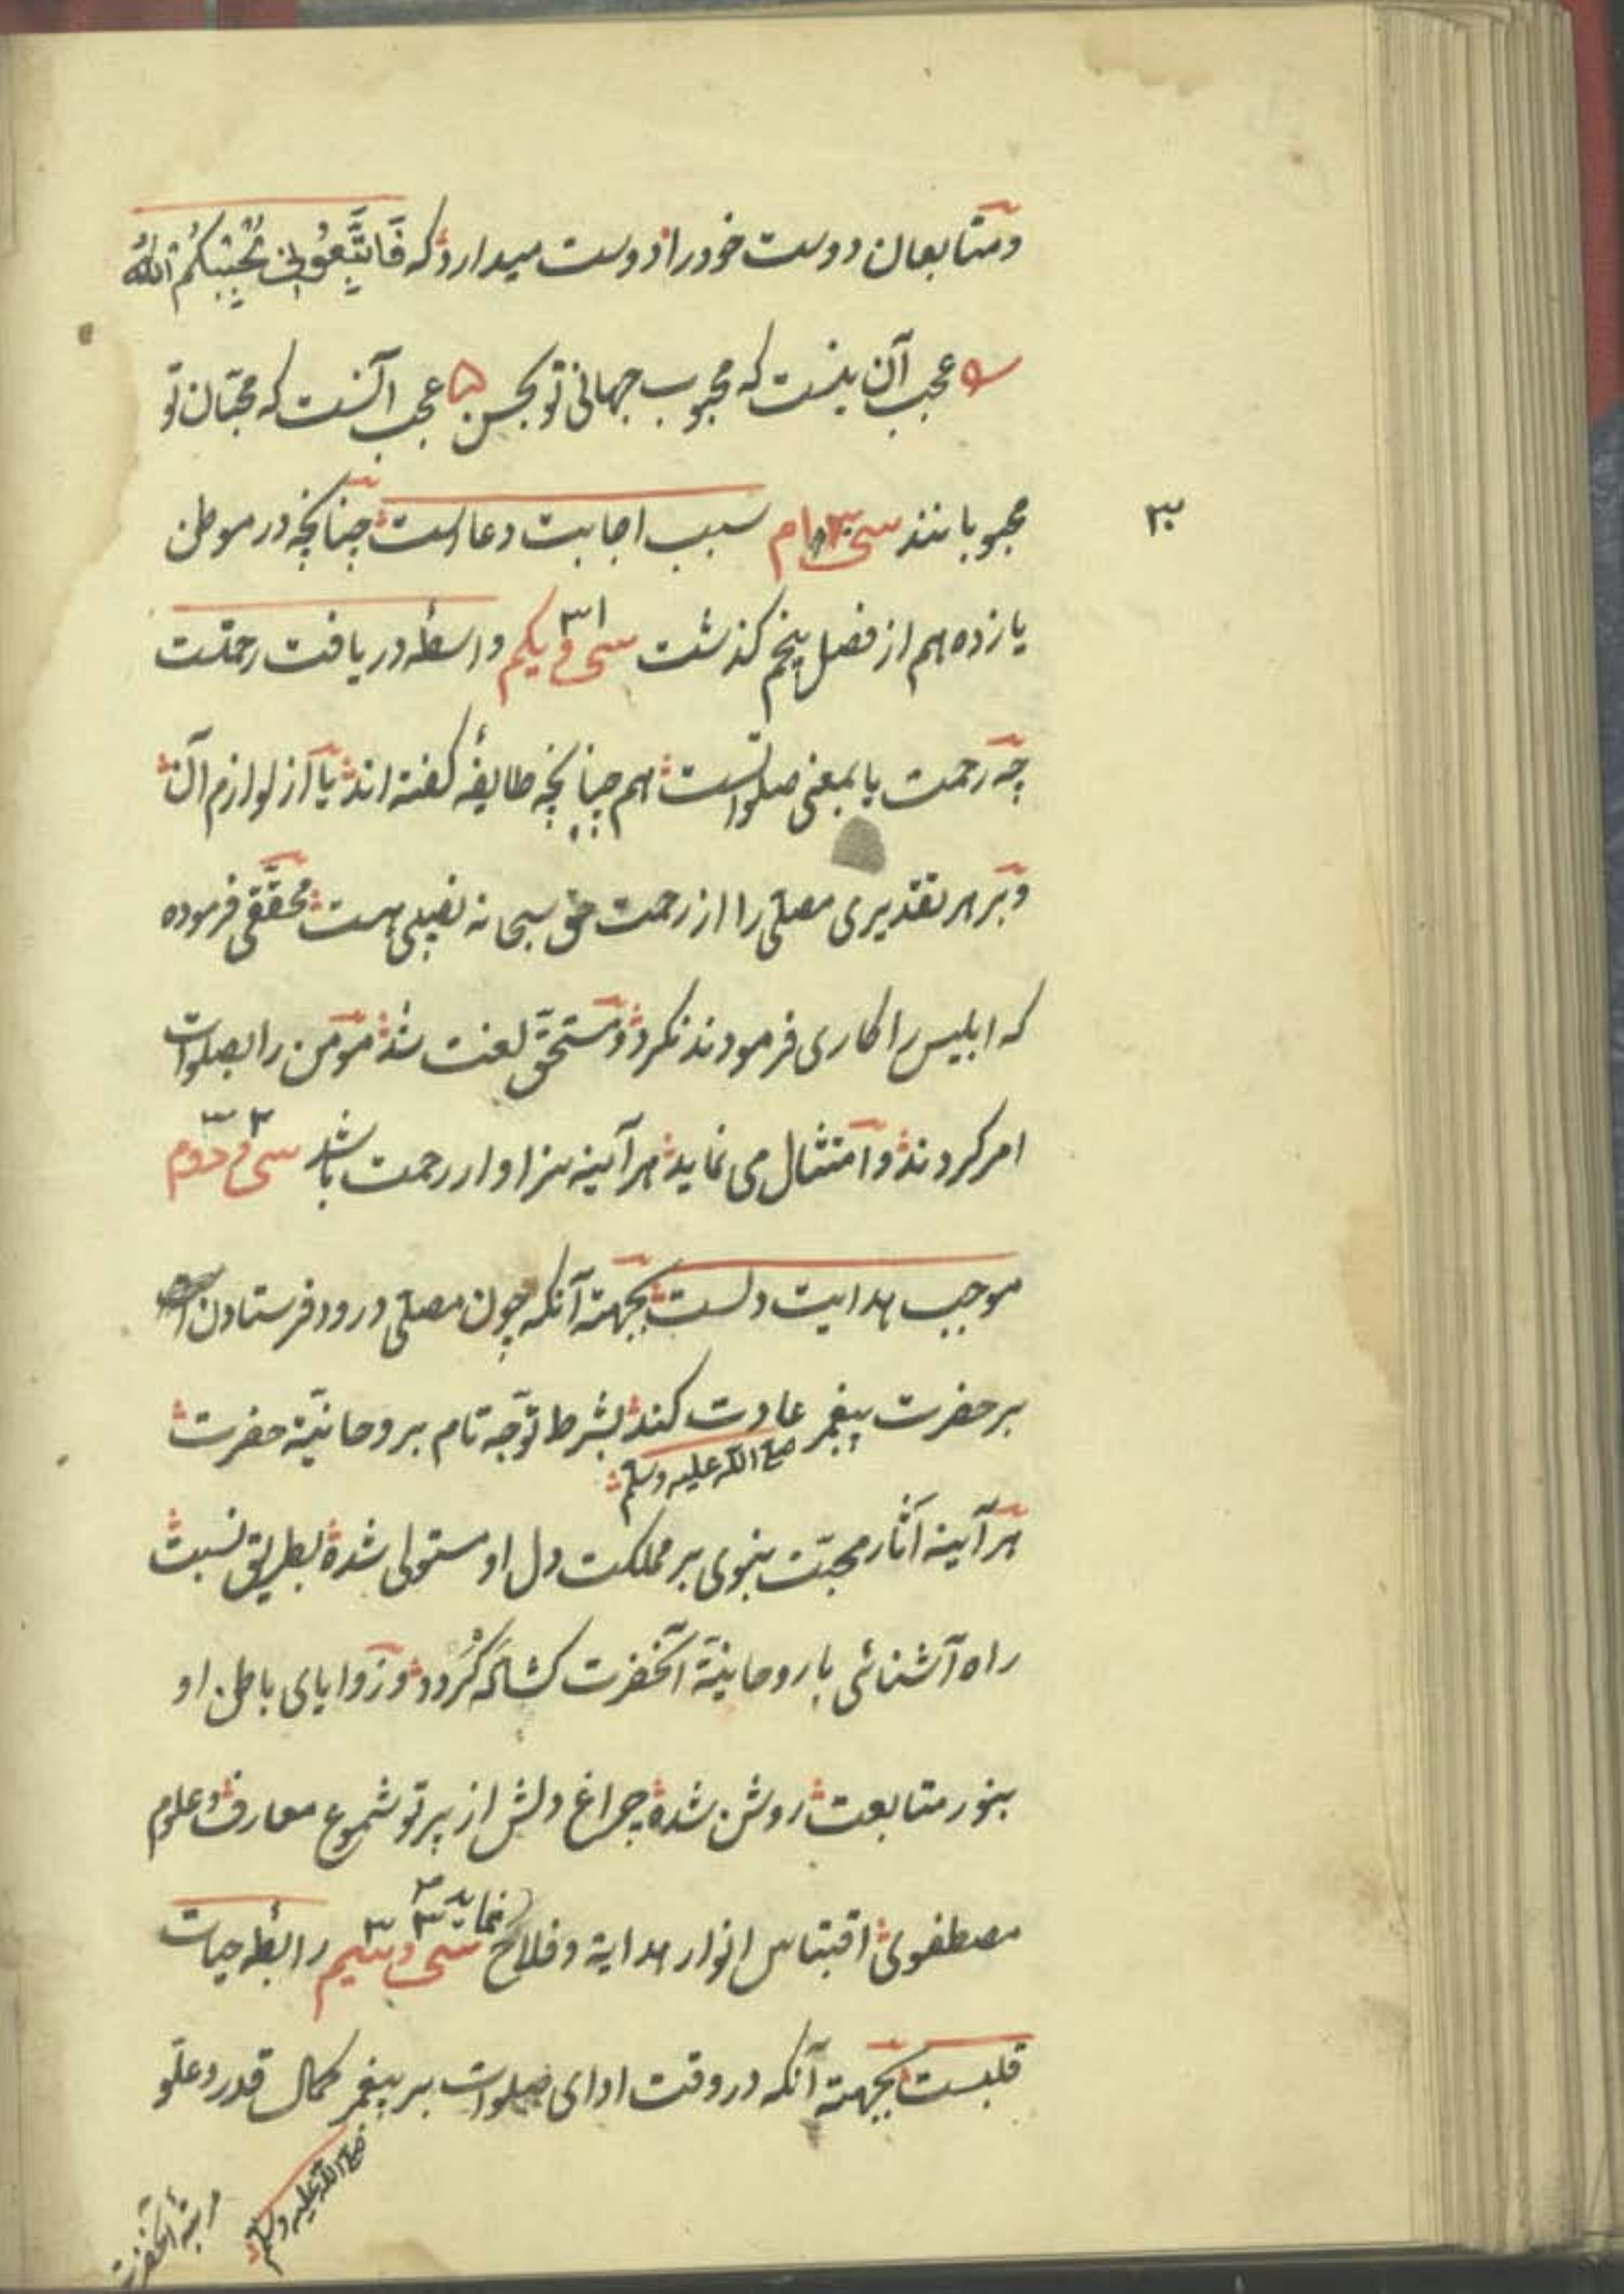 ومتابعان دوست خود را دوست میدارد که فَاتَّبِعُونِی یُحْبِبْکُمُ اللّٰهُ
عجب آن نیست که محبوب جهانی تو بحسن عجب آنست که محبّان تو
محبوبانند سی ام سبب اجابت دعاست چنانچه در موطن
۳۰
یازدهم از فصل پنجم کذشت سی و یکم ۳۱ واسطه دریافت رحمتست
چه رحمت یا بمعنی صلواتست هم چنانچه طایفهٔ کفته اند یا از لوازم آن
وبر هر تقدیری مصلّی را از رحمت حق سبحانه نصیبی هست محقّقی فرموده
که ابلیس را کاری فرمودند نکرد ومستحقّ لعنت شد مؤمن را بصلوات
امر کردند وامتثال می نماید هر آینه سزاوار رحمت باشد سی و دوم ۳۲
موجب هدایت دلست بجهة آنکه چون مصلّی درود فرستادن
بر حضرت پیغمبر صلی الله علیه وسلم عادت کند بشرط توجّه تام بروحانیّة حضرت
هر آینه آثار محبّت نبوی بر مملکت دل او مستولی شده بطریق نسبت
راه آشنائی با روحانیّة آنحضرت کشاده کردد وزوایای باطن او
بنور متابعت روشن شده چراغ دلش از پرتو شموع معارف وعلوم
مصطفوی اقتباس انوار هدایة وفلاح نماید سی و سیم ۳۳ رابطه حیات
قلبست بجهة آنکه در وقت ادای صلوات بر پیغمبر کمال قدر وعلوّ
صلی الله علیه وسلم
مرتبهٔ آنحضرت